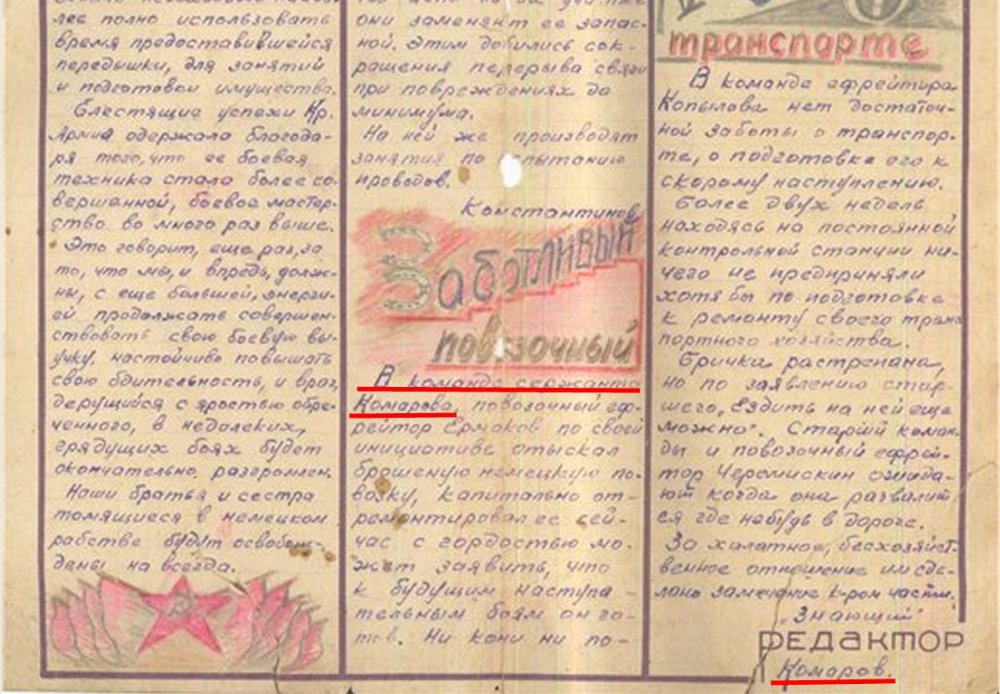 лее полно использовать
время предоставившейся
передышки, для занятий
и подготовки имущества.
Блестящие успехи Кр.
Армия одержала благода-
ря того, что ее боевая
техника стала более со-
вершенной, боевое мастер-
ство во много раз выше.
Это говорит, еще раз, за
то, что мы, и впредь, долж-
ны, с еще большей, энерги-
ей продолжать совершен-
ствовать свою боевую вы-
учку, настойчиво повышать
свою бдительность, и враг,
дерущийся с яростью обре-
ченного, в недалеких,
грядущих боях будет
окончательно разгромлен.
Наши братья и сестра
томящиеся в немецком
рабстве будут освобож-
дены на всегда.
они заменяют ее запас-
ной. Этим добились сок-
ращения перерыва связи
при повреждениях до
минимума.
На ней же производят
занятия по пытанию
проводов.
Константинов
Заботливый
повозочный
В команде сержанта
Комарова, повозочный еф-
рейтор Ермаков по своей
инициативе отыскал
брошеную немецкую по-
возку, капитально от-
ремонтировал ее сей-
час с гордостью мо-
жет заявить, что
к будущим наступа-
тельным боям он го-
тов. Ни кони ни по-
транспорте
В команде ефрейтира
Копылова нет достаточ-
ной заботы о транспор-
те, о подготовке его к
скорому наступлению.
Более двух недель
находясь на постоянной
контрольной станции ни-
чего не предприняли
хотя бы по подготовке
к ремонту своего тран
портного хозяйства.
Бричка растрепана,
но по заявлению стар-
шего, „Ездить на ней еще
можно". Старший коман-
ды и повозочный ефрей-
тор Черемискин ожида-
ют когда она развалит-
ся где нибудь в дороге.
За халатное, бесхозяйст-
венное отношение им сде-
лано замечание к-ром части.
„Знающий"
РЕДАКТОР
Комаров.